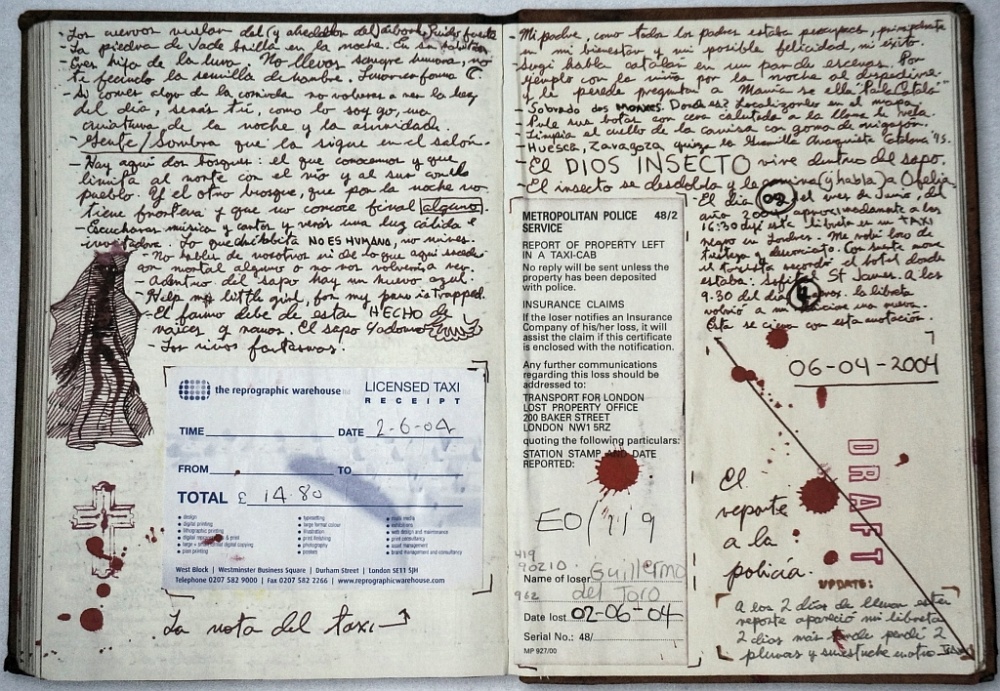 - Los cuervos vuelan del (y alrededor del) árbol. Ruido fuerte
- La piedra de Jade brilla en la noche. En su
- Eres hija de la luna. No llevas sangre humana, no
te fecundo la semilla de hombre.
- Si comes algo de la comida no volverás a ver la luz
del día, serás tú, como lo soy yo, una
criatura de la noche y la
- Gente/Sombra que la sigue en el salón.
- Hay aquí dos bosques: el que conocemos y que
limita al monte con el río y al sur con el
pueblo. Y el otro bosque, que por la noche no
tiene frontera y que no conoce final alguno.
- Escucharás música y cantos y verás una luz cálida e
invitadora. Lo que ahí habita NO ES HUMANO, no mires.
- No hables de nosotros ni de lo que aquí
con mortal alguno o no nos volverás a ver.
- Adentro del sapo hay un huevo azul.
- Help my little girl, for my is trapped.
- El fauno debe de estar HECHO de
raíces y ramos. El sapo
- Los niños fantasmas.
the reprographic warehouse
LICENSED TAXI
RECEIPT
TIME
DATE 2-6-04
FROM
TO
TOTAL £ 14.80
design
digital printing
lithographic printing
plan printing
typesetting
large format colour
illustration
print finishing
photography
posters
multi media
exhibitions
web design and maintenance
print consultancy
asset management
brand management and consultancy
West Block | Westminster Business Square | Durham Street | London SE11 5JH
Telephone 0207 582 9000 | Fax 0207 582 2266 | www.reprographicwarehouse.com
La nota del taxi
- Mi padre, como todos los padres estaba preocupado, principalmente
en mi bienestar y mi posible felicidad, mi éxito.
- Sugi habla catalán en un par de escenas. Por
ejemplo con la niña por la noche al despedirse
y le pregunta a María si ella "Parla Català"
- Sobrado dos MONXES. Donde es? Localizarlo en el mapa.
- Pule sus botas con cera calentada a la llama de vela.
- Limpia el cuello de la camisa con goma de migajón.
- Huesca, Zaragoza, quizá la Guerrilla Anarquista Catalana '45.
- El DIOS INSECTO vive dentro del sapo.
- El insecto se desdobla y camina (y habla) a Ofelia
- El día 02 del mes de Junio, del
año 2004 aproximadamente a las
16:30 dejé esta libreta en un TAXI
negro en Londres. Me volví loco de
tristeza y
el taxista recordó el hotel donde
estaba: Sofitel St James. A las
9.30 del día 4 la libreta
volvió a mi
Esta se cierra con esta anotación.
METROPOLITAN POLICE 48/2
SERVICE
REPORT OF PROPERTY LEFT
IN A TAXI-CAB
No reply will be sent unless the
property has been deposited
with police.
INSURANCE CLAIMS
If the loser notifies an Insurance
Company of his/her loss, it will
assist the claim if this certificate
is enclosed with the notification.
Any further communications
regarding this loss should be
addressed to:
TRANSPORT FOR LONDON
LOST PROPERTY OFFICE
200 BAKER STREET
LONDON NW1 5RZ
quoting the following particulars:
STATION STAMP AND DATE
REPORTED:
419
90210
Name of loser Guillermo
962 del Toro
Date lost 02-06-04
Serial No.: 48/
MP 927/00
06-04-2004
DRAFT
El
reporte
a la
policía.
UPDATE:
A los 2 días de llenar este
reporte apareció mi libreta
2 días más tarde perdí 2
plumas y su estuche en otro TAXI